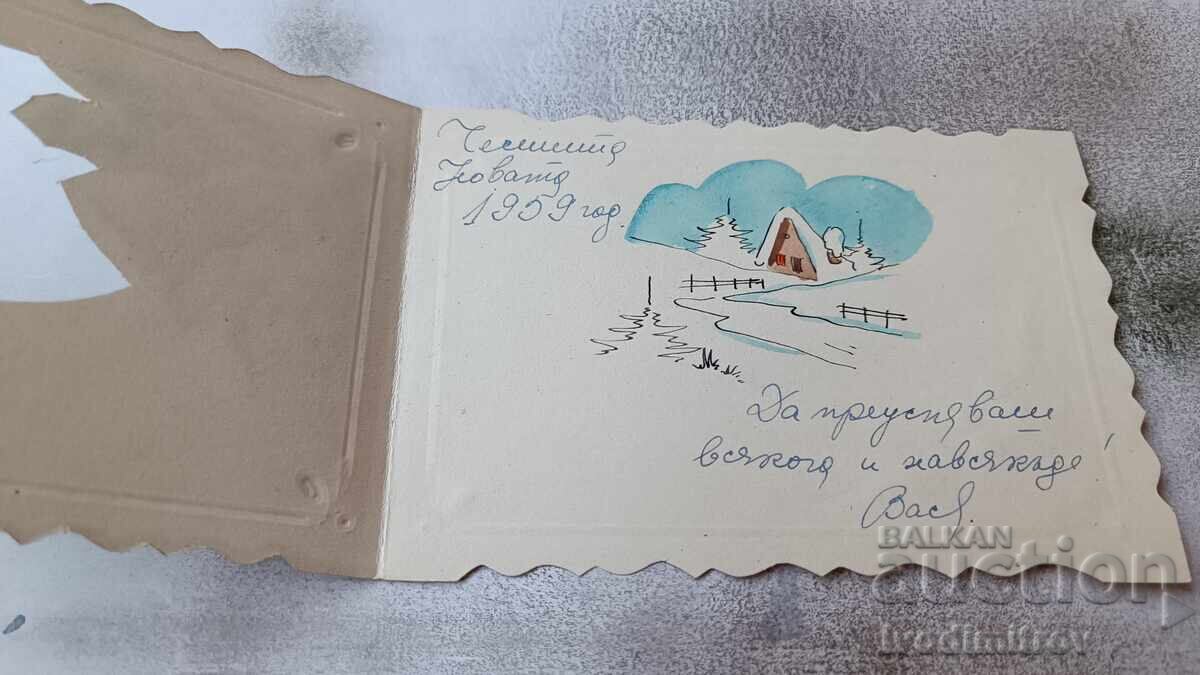 Честита
Новата
1959 год.
Да преуспяваш
всякога и навсякъде!
Вася.
BALKAN
auction
ivodimitrov